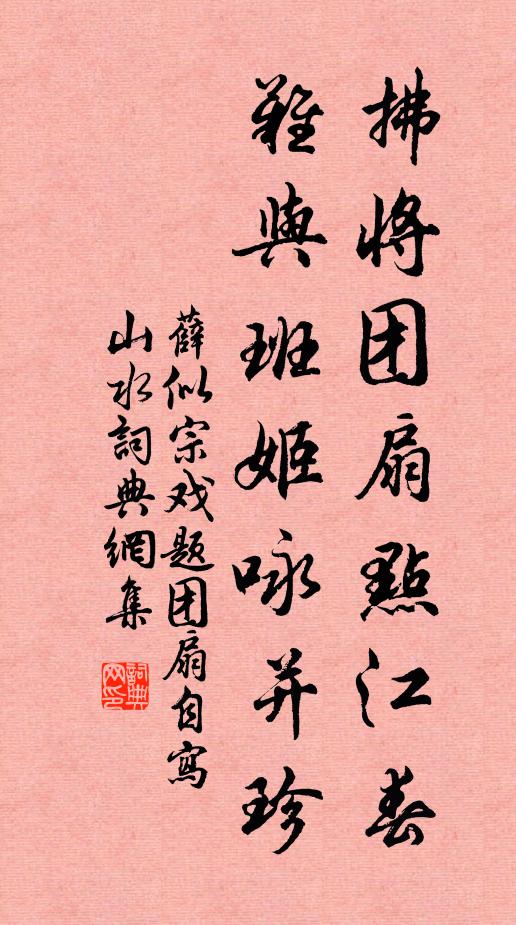 拂将团扇點江春
難與班姬咏并珍
薛似宗戏题团扇自寫
山水詞典網集
詞典网印